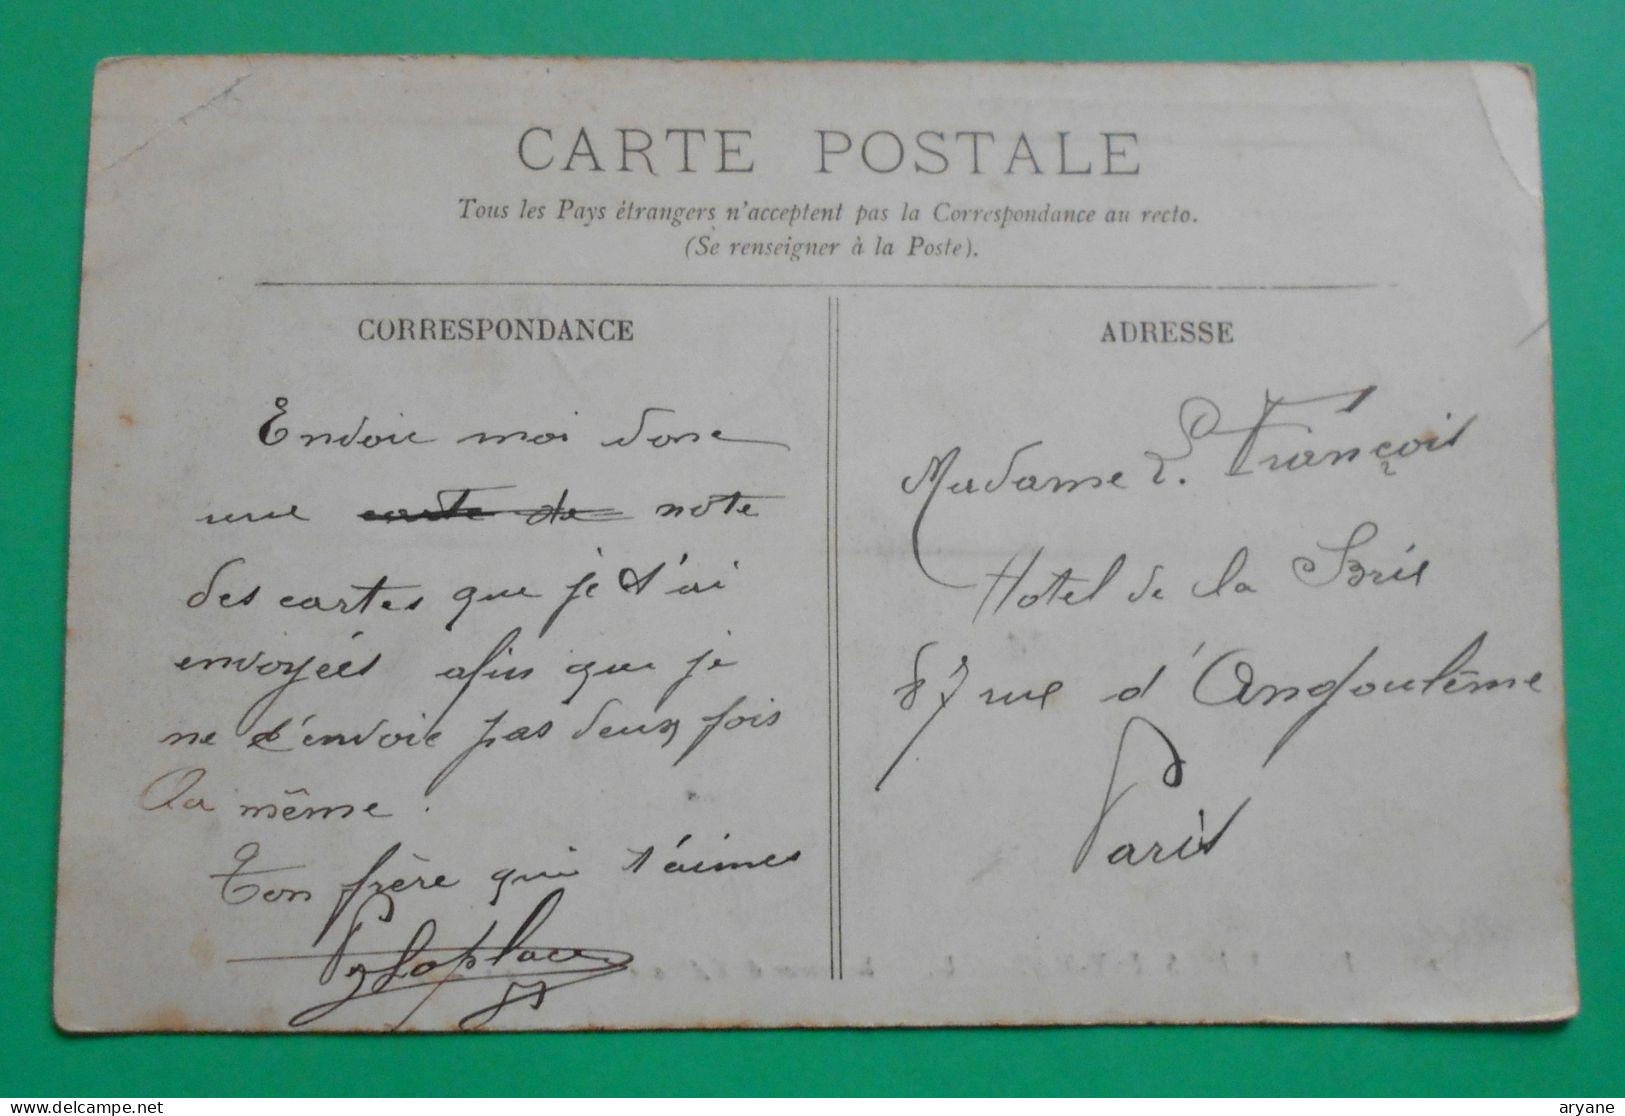 CARTE POSTALE
Tous les Pays étrangers n'acceptent pas la Correspondance au recto.
(Se renseigner à la Poste).
CORRESPONDANCE
Envoie moi donc
une carte de note
des cartes que je t'ai
envoyées afin que je
ne t'envoie pas deux fois
La même.
Ton frère qui t'aimes
Laplace
ADRESSE
Madame L. François
Hotel de la Brie
87 rue d'Angoulême
Paris
aryane